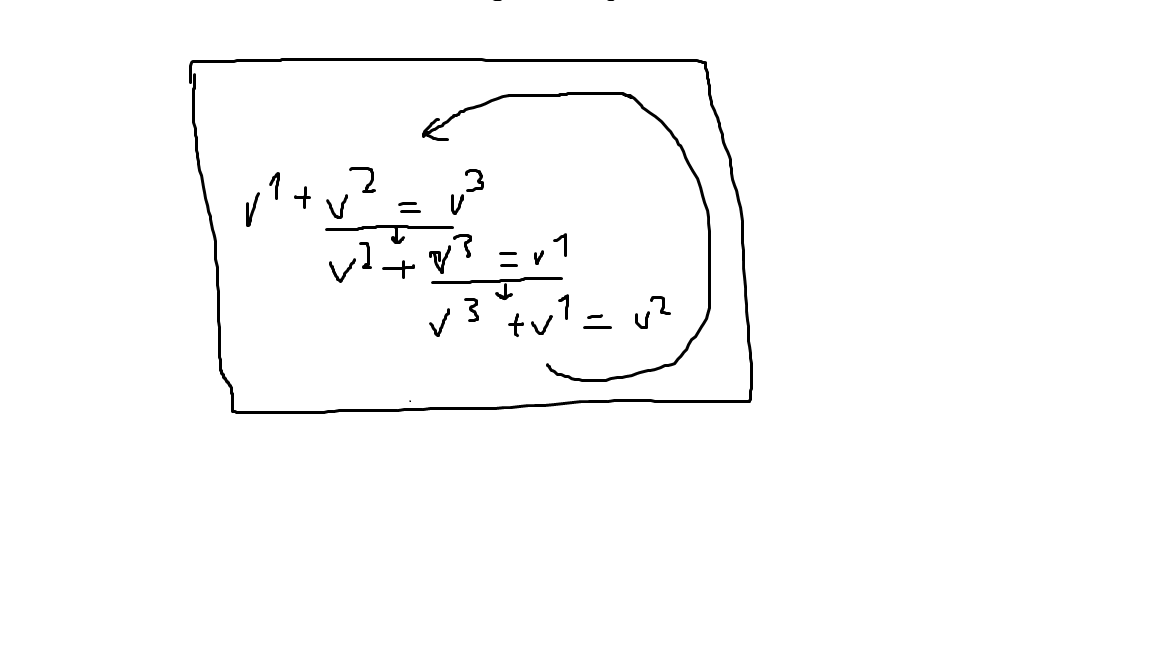 v¹ + v² = v³
v² + v³ = v¹
v³ + v¹ = v²